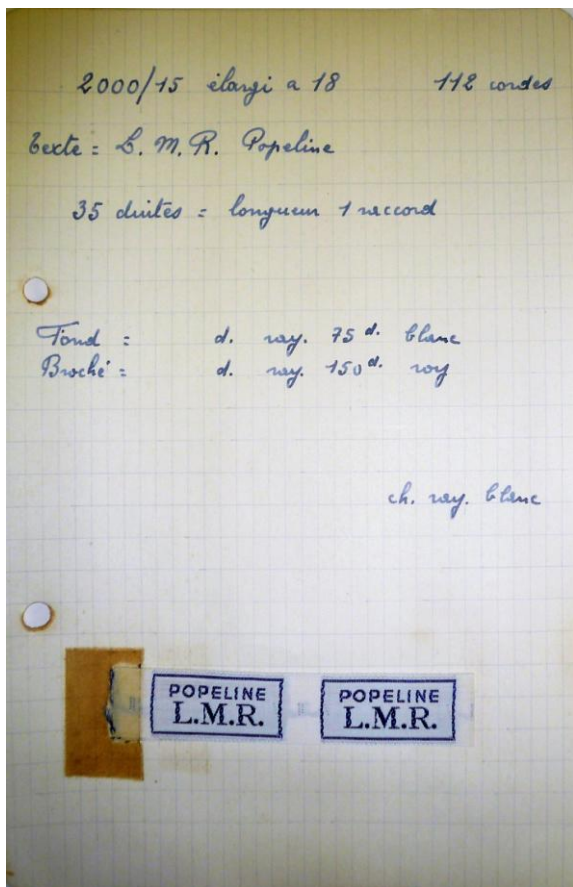 2000/15 élargi a 18 112 cordes
Texte = L. M. R. Popeline
35 duites = longueur 1 raccord
Fond = d. ray. 75 d. blanc
Broché = d. ray. 150 d. roy
ch. ray. blanc
POPELINE POPELINE
L.M.R. L.M.R.